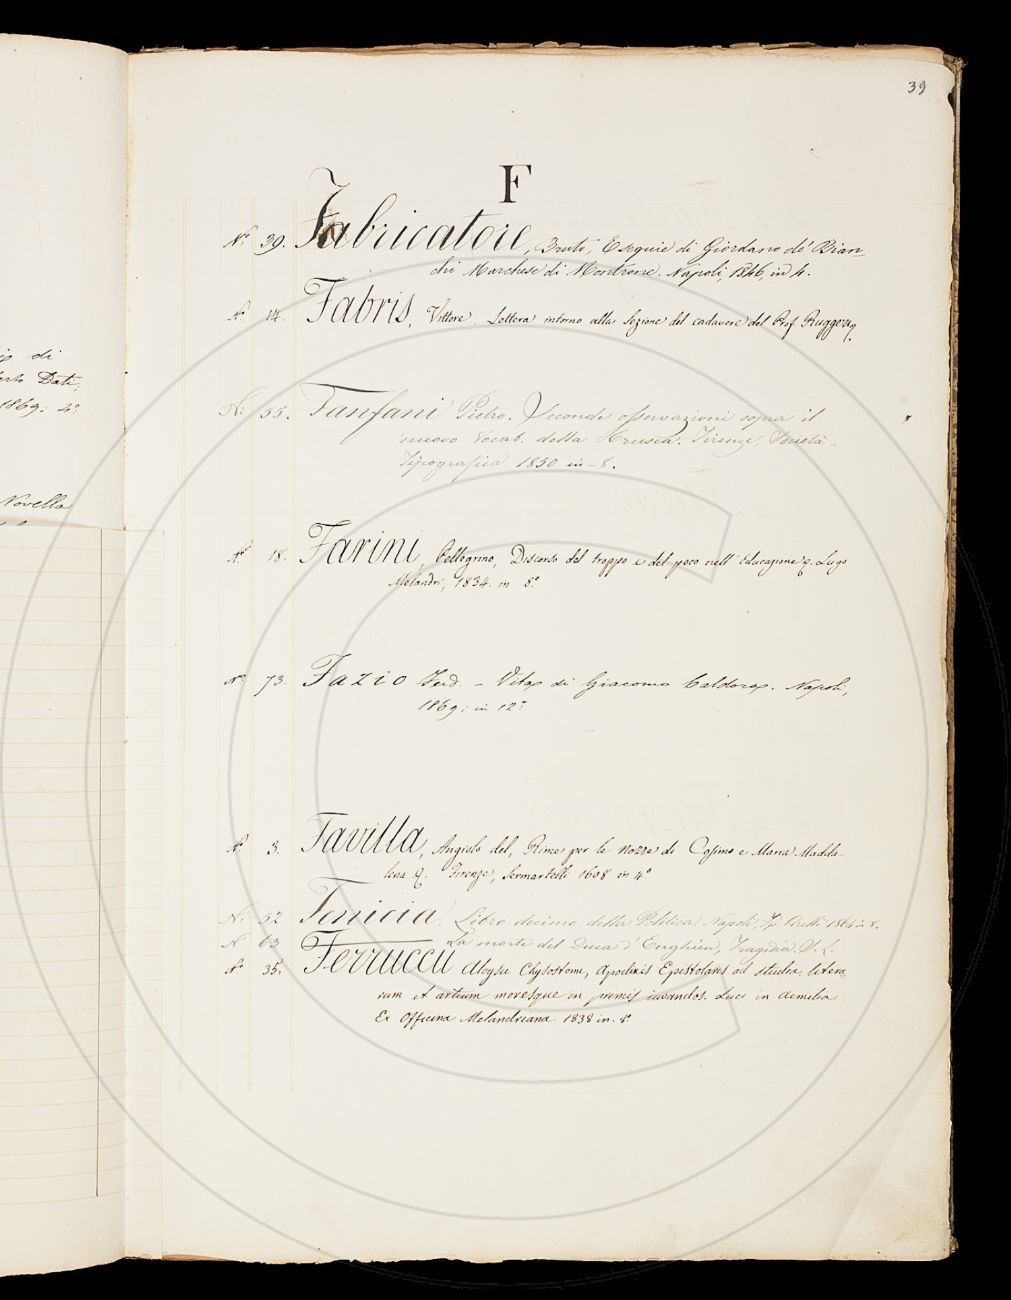 ip di
erto Dati;
1869: 4º
Novella
39
F
Nº 39. Fabricatore, Bruto, Esequie di Giordano de' Bian-
chi Marchese di Montrone. Napoli, 1846, in 4.
Nº 14. Fabris, Vittore. Lettera intorno alla Sezione del cadavere del Prof. Ruggeri
Nº 55. Fanfani Pietro. Seconde osservazioni sopra il
nuovo Vocab. della Crusca. Firenze, Società
Tipografica 1850 in-8.
Nº 18. Farini, Pellegrino, Discorso del troppo e del poco nell'Educazione. Lugo
Melandri, 1834. in 8º
Nº 73. Fazio Ferd. - Vita di Giacomo Caldora. Napoli,
1869: in 12º
Nº 3. Favilla, Angiolo del, Rime per le Nozze di Cosimo e Maria Madda-
lena Firenze, Sermartelli 1608 in 4º
Nº 52 Fenicia. Libro decimo della Politica. Napoli, 1864 in 8.
Nº 63 La morte del Duca d'Enghien, Tragedia.
Nº 35. Ferruccii Aloysii Chrysostomi, Apodixis Epistolaris ad studia litera-
rum et artium moresque in iuvandos. Luci in Aemilia
Ex Officina Melandriana 1838 in 8º